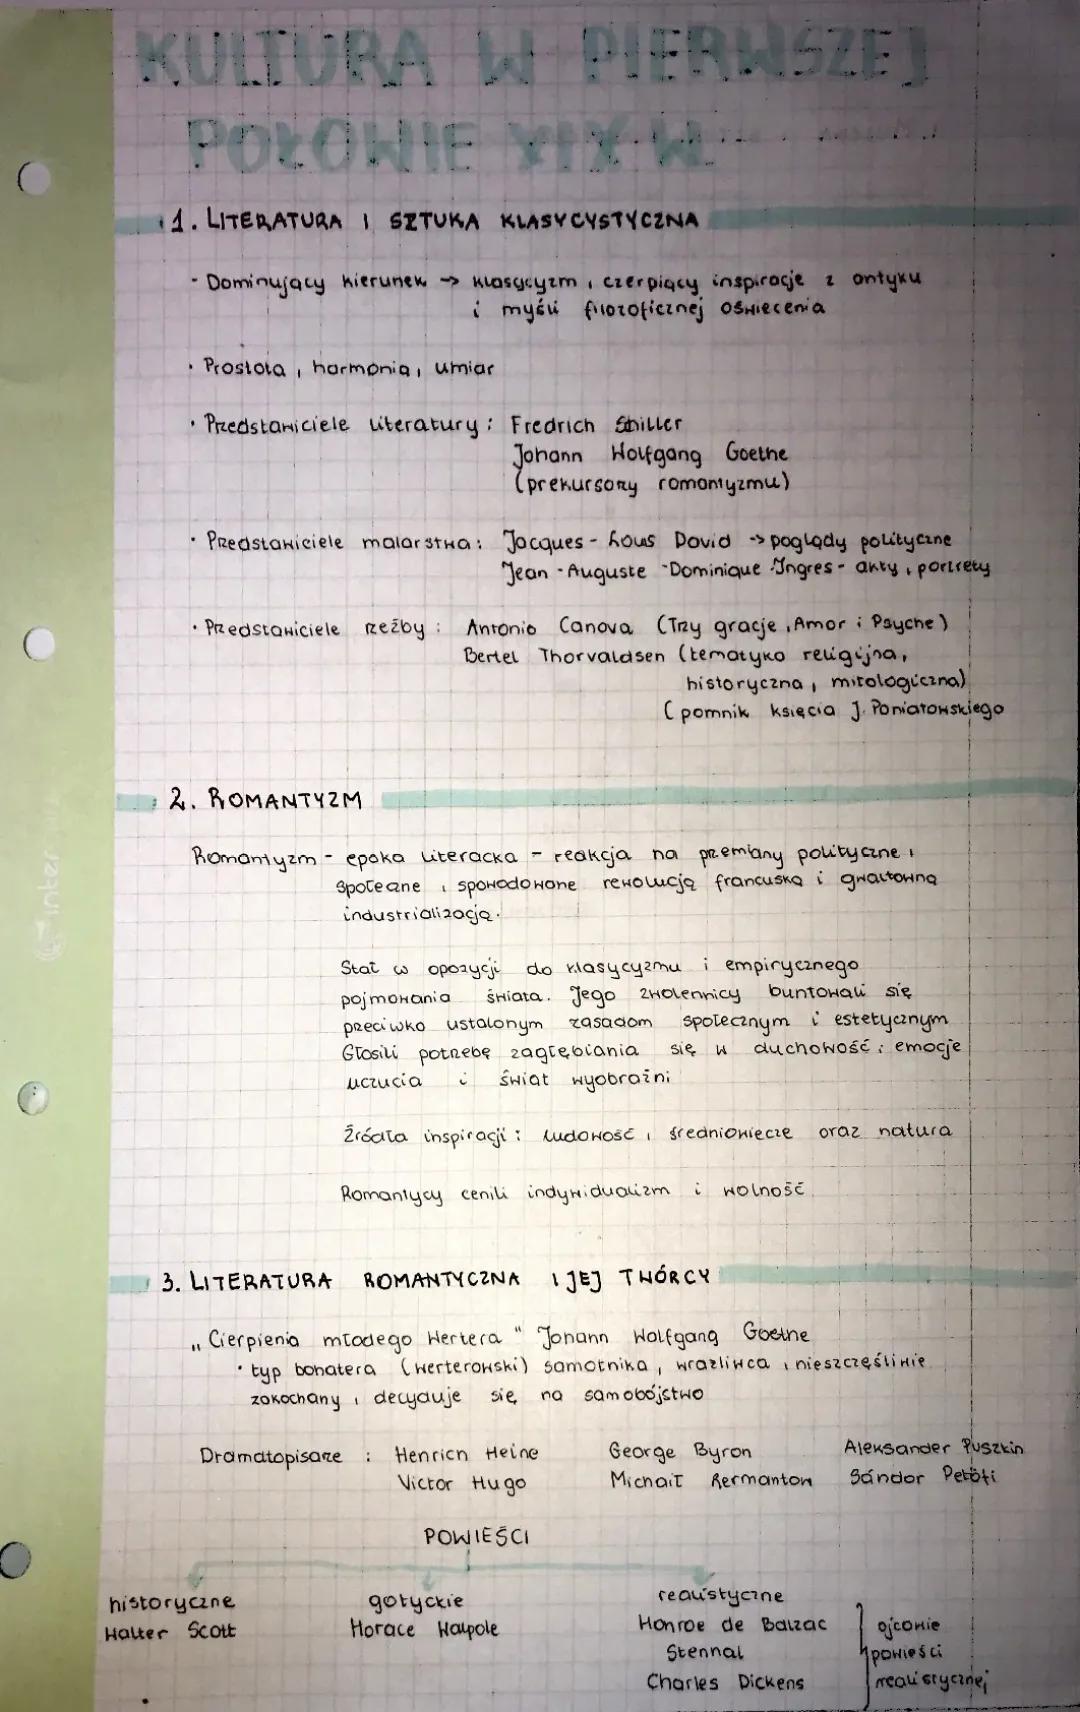 KULTURA W PIERWSZEJ
POŁOWIE XIX W.
1. LITERATURA I SZTUKA KLASYCYSTYCZNA
- Dominujący kierunek → klasycyzm, czerpiący inspirację z antyku
i myśli filozoficznej oświecenia
• Prostota, harmonia, umiar
• Przedstawiciele literatury: Fredrich Shiller
Johann Wolfgang Goethe
(prekursorzy romantyzmu)
• Przedstawiciele malarstwa: Jacques-Lous David → poglądy polityczne
Jean-Auguste-Dominique Ingres - akty, portrety
• Przedstawiciele rzeźby: Antonio Canova (Trzy gracje, Amor i Psyche)
Bertel Thorvaldsen (tematyka religijna,
historyczna, mitologiczna)
(pomnik księcia J. Poniatowskiego
2. ROMANTYZM
Romantyzm - epoka literacka - reakcja na przemiany polityczne i
społeczne, spowodowane rewolucją francuską i gwałtowną
industrializacją.
Stał w opozycji do klasycyzmu i empirycznego
pojmowania świata. Jego zwolennicy buntowali się
przeciwko ustalonym zasadom społecznym i estetycznym
Głosili potrzebę zagłębiania się w duchowość, emocje
uczucia i świat wyobraźni
Źródła inspiracji: ludowość, średniowiecze oraz natura
Romantycy cenili indywidualizm i wolność
3. LITERATURA ROMANTYCZNA I JEJ TWÓRCY
„Cierpienia młodego Wertera" Johann Wolfgang Goethe
• typ bohatera (werterowski) samotnika, wrażliwca, nieszczęśliwie
zakochany, decyduje się na samobójstwo
Dramatopisarze: Henrich Heine George Byron Aleksander Puszkin
Victor Hugo Michaił Rermantow Sándor Petöfi
POWIEŚCI
historyczne gotyckie realistyczne
Walter Scott Horace Walpole Honroe de Balzac ojcowie
Stennal powieści
Charles Dickens realistycznej
inter